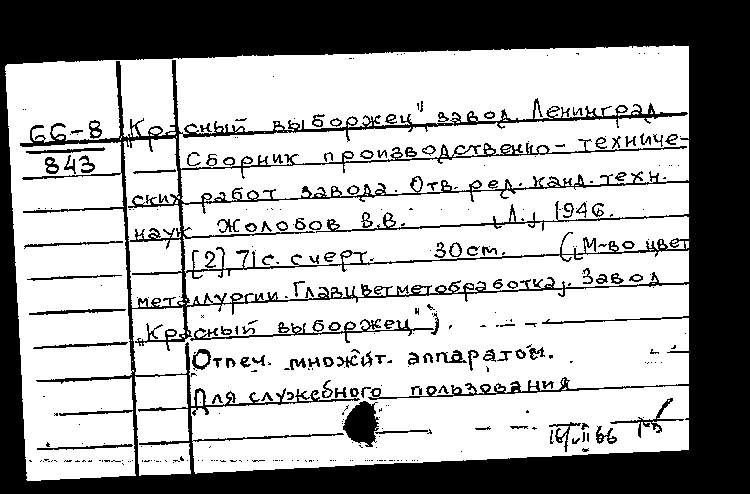 66-8
843
„Красный выборжец", завод. Ленинград.
Сборник производственно-техниче-
ских работ завода. Отв. ред. канд. техн.
наук Жолобов В.В. [Л.], 1946.
[2], 71 с. с черт. 30 cm. ([М-во цвет
металлургии. Главцветметобработка]. Завод
„Красный выборжец").
Отпеч. множит. аппаратом.
Для служебного пользования